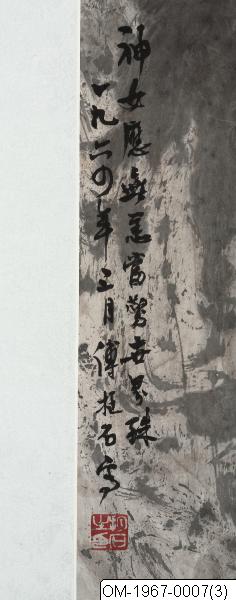 神女應無恙當驚世界殊
一九六四年三月傅抱石寫
抱石之印
OM-1967-0007(3)